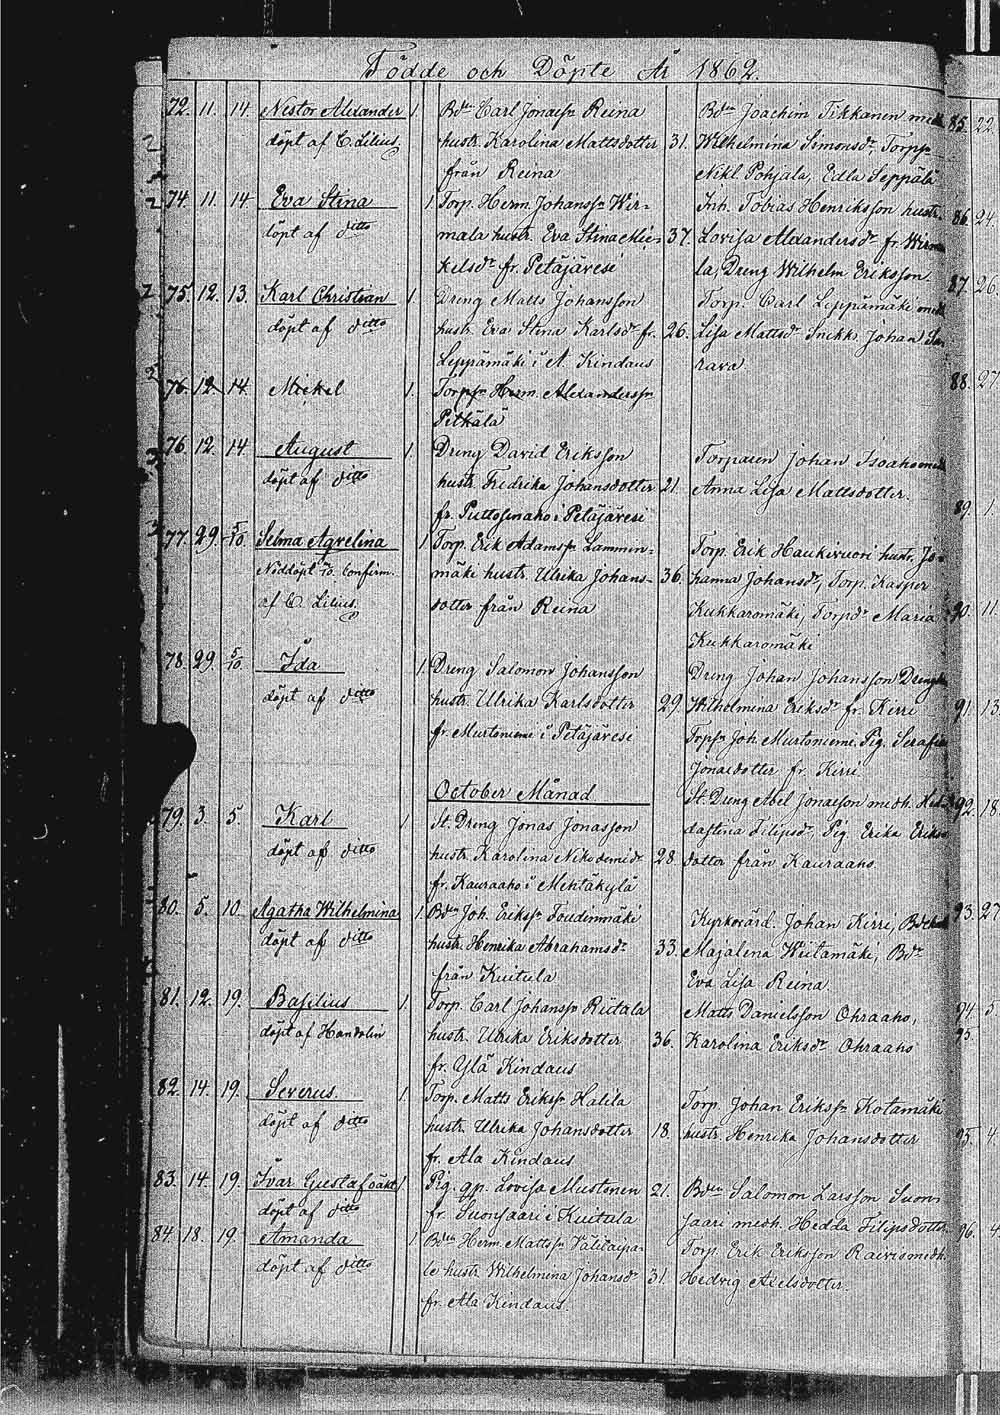 Födde och Döpte År 1862.
72. 11. 14. Nestor Alexander 1. Bdn Carl Jonassn Reina Bdn Joachim Tikkanen med
döpt af C. Lilius hustr. Karolina Mattsdotter 31. Wilhelmina Simonsdr, Torpp
från Reina Nikl Pohjala, Edla Seppälä
74. 11. 14. Eva Stina 1. Torp. Herm. Johanssn Wir- Inh. Tobias Henriksson hustr.
döpt af ditto mala hustr. Eva Stina Mic- 37. Lovisa Alexandersdr fr. Wirma
kelsdr fr. Petäjävesi la, Dreng Wilhelm Eriksson
75. 12. 13. Karl Christian 1. Dreng Matts Johansson Torp. Carl Leppämäki med
döpt af ditto hustr. Eva Stina Karlsdr fr. 26. Lisa Mattsdr Snikk. Johan Sa
Leppämäki i A. Kindaus rava
76. 12. 14. Mickel 1. Torpsn Herm. Alexanderssn
Pitkälä
76. 12. 14. August 1. Dreng David Eriksson Torparen Johan Isoaho med
döpt af ditto hustr. Fredrika Johansdotter 21. Anna Lisa Mattsdotter.
fr. Puttosmaho i Petäjävesi
77. 29. 5/10. Selma Aqvelina 1. Torp. Erik Adamssn Lammin- Torp. Erik Haukivuori hustr. Jo-
Nöddöpt confirm. mäki hustr. Ulrika Johans- 36. hanna Johansdr, Torp. Kasper
af C. Lilius. dotter från Reina Kukkaromäki, Torpdr Maria
Kukkaromäki
78. 29. 5/10. Ida 1. Dreng Salomon Johansson Dreng Johan Johansson Dreng
döpt af ditto hustr. Ulrika Karlsdotter 29. Wilhelmina Eriksdr fr. Kirri
fr. Murtoniemi i Petäjävesi Torpsn Joh. Murtoniemi, Pig. Serafia
Jonaedotter fr. Kirri
October Månad
79. 3. 5. Karl 1. St. Dreng Jonas Jonasson St. Dreng Abel Jonaeson medh. Hed-
döpt af ditto hustr. Karolina Nikodemidr 28. dastina Filipsdr, Pig. Erika Eriks
fr. Kauraaho i Mehtäkylä dotter från Kauraaho
80. 5. 10. Agatha Wilhelmina 1. Bdn Joh. Erikssn Toudinmäki Kyrkovärd. Johan Kirri, Bd
döpt af ditto hustr. Henrika Abrahamsdr 33. Majalena Wiitamäki, Bdr
från Kuitula Eva Lisa Reina
81. 12. 19. Basilius 1. Torp. Carl Johanssn Riitala Matts Danielsson Ohraaho,
döpt af Handolin hustr. Ulrika Eriksdotter 36. Karolina Eriksdr Ohraaho
fr. Ylä Kindaus
82. 14. 19. Severus. 1. Torp. Matts Erikssn Halila Torp. Johan Erikssn Kotamäki
döpt af ditto hustr. Ulrika Johansdotter 18. hustr. Henrika Johansdotter
fr. Ala Kindaus
83. 14. 19. Ivar Gustaf oäkt 1 Pig. gp. Lovisa Mustonen 21. Bdn Salomon Larsson Suon
döpt af ditto fr. Suonsaari i Kuitula saari medh. Hedda Filipsdotter
84. 18. 19. Amanda 1. Bdn Herm. Mattssn Välitaipa- Torp. Erik Eriksson Raivio medh.
döpt af ditto le hustr. Wilhelmina Johansdr 31. Hedvig Axelsdotter.
fr. Ala Kindaus.
85. 22.
86. 24.
87. 26.
88. 27.
89. 1.
90. 11.
91. 13.
92. 18.
93. 27
94. 5.
95.
95. 4.
96. 4.